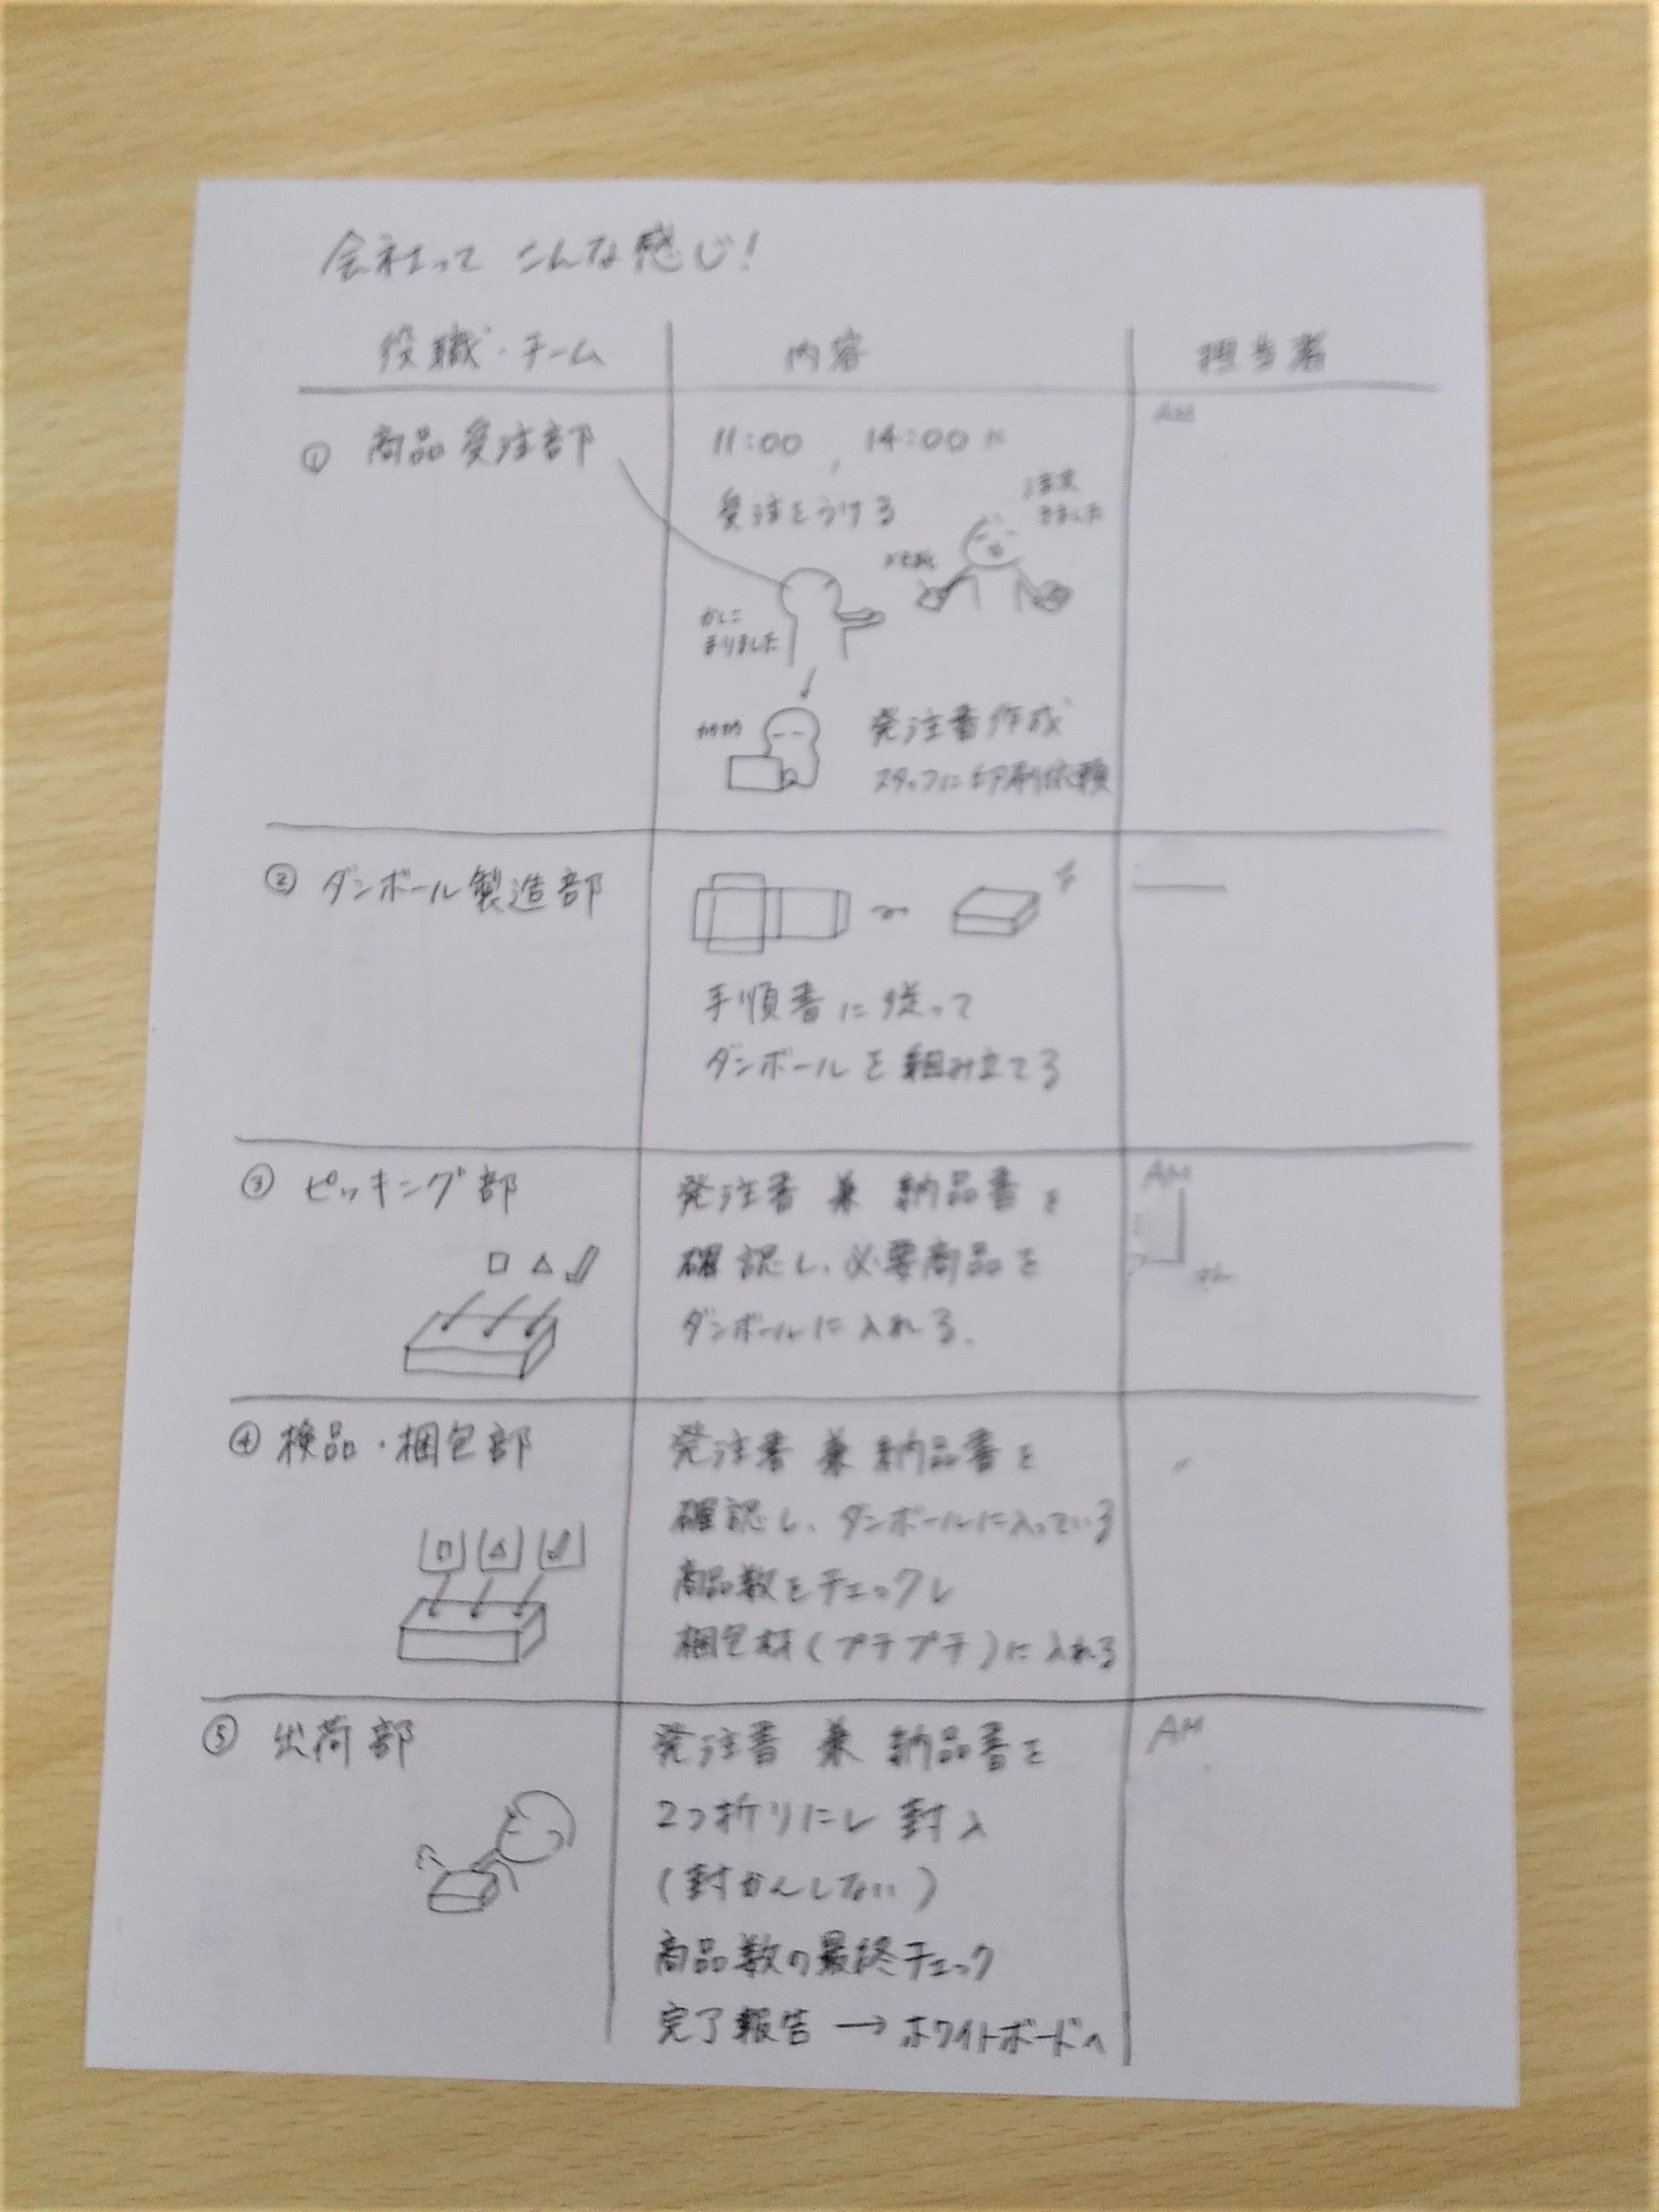 会社って こんな感じ!
役職・チーム 内容 担当者
① 商品受注部
11:00 , 14:00 に
受注をうける
注文
きました
かしこ
まりました
カタカタ
発注書作成
スタッフに印刷依頼
AM
② ダンボール製造部
手順書に従って
ダンボールを組み立てる
③ ピッキング部
発注書 兼 納品書を
確認し、必要商品を
ダンボールに入れる.
AM
④ 検品・梱包部
発注書 兼 納品書を
確認し、ダンボールに入っている
商品数をチェックし
梱包材(プチプチ)に入れる
⑤ 出荷部
発注書 兼 納品書を
2つ折りにし 封入
(封かんしない)
商品数の最終チェック
完了報告 → ホワイトボードへ
AM